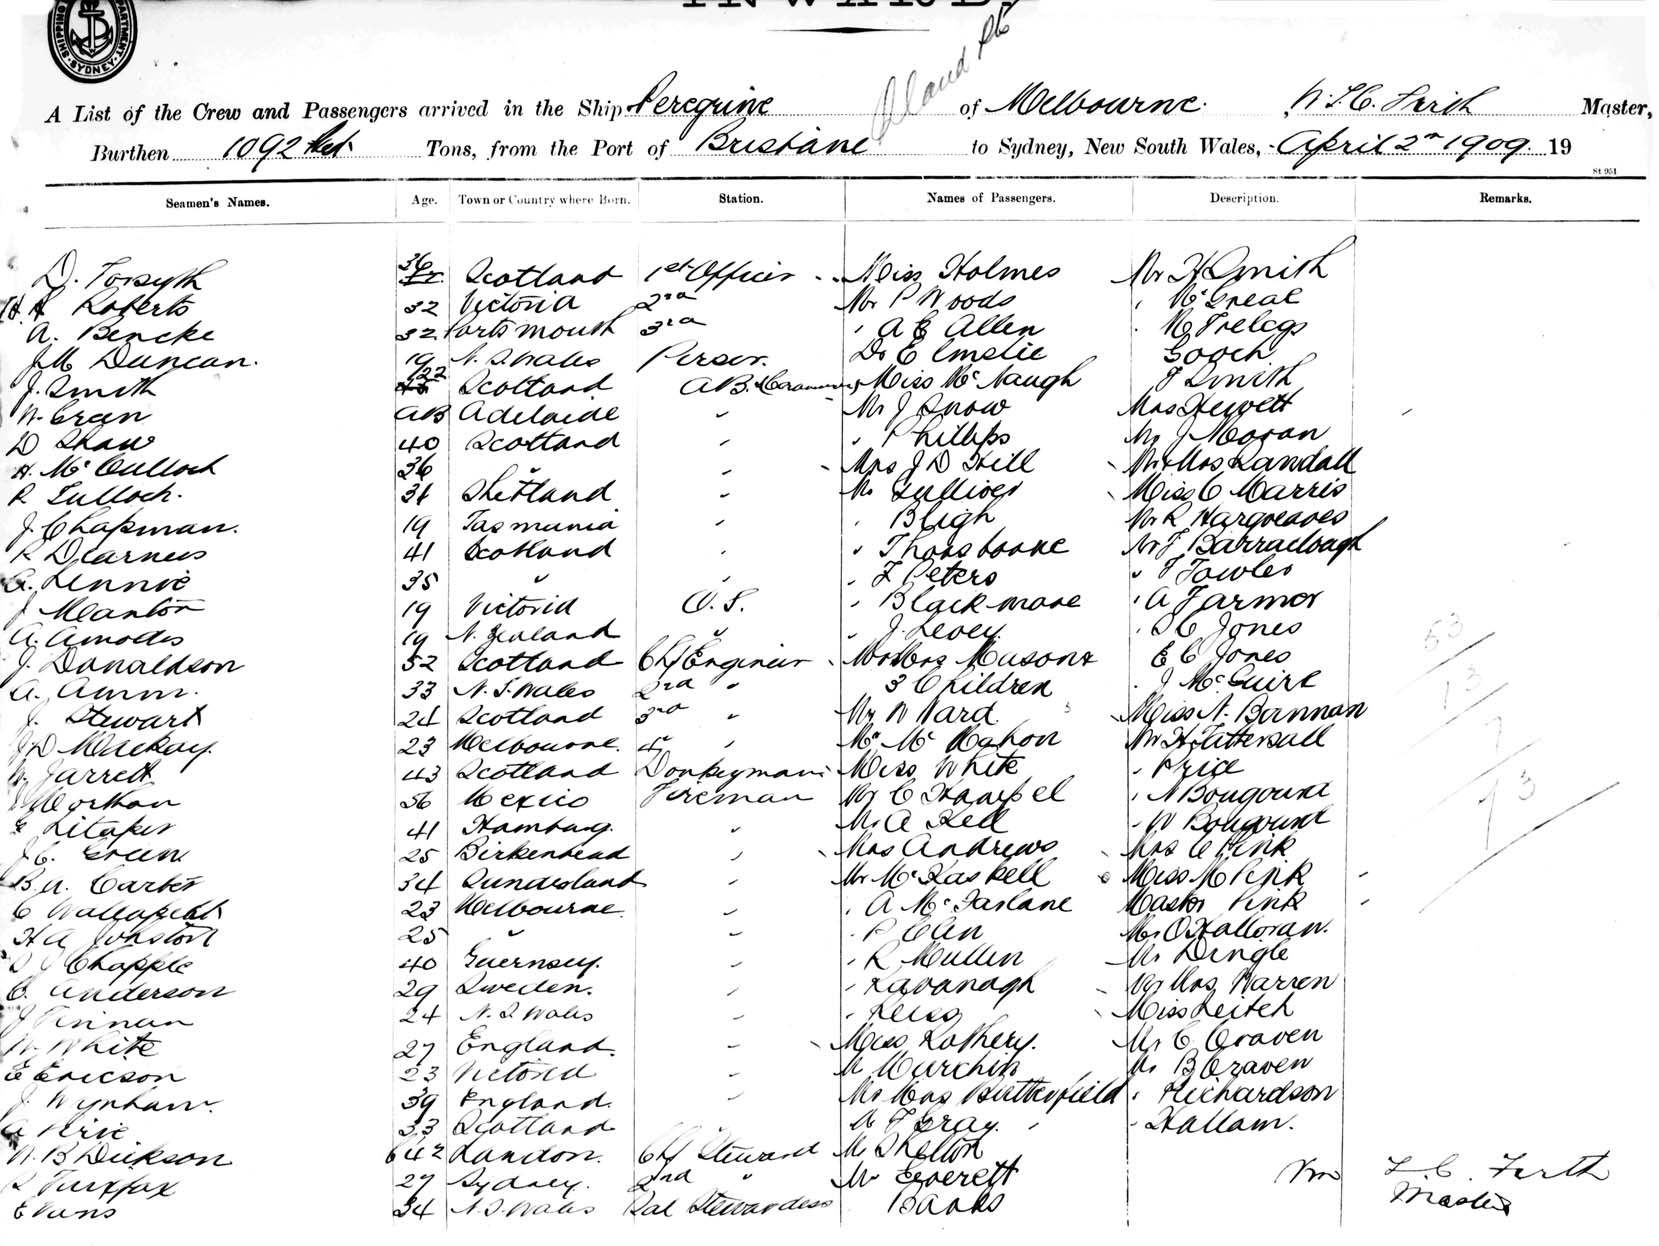 INWARD.
SHIPPING DEPARTMENT SYDNEY
A List of the Crew and Passengers arrived in the Ship Peregrine of Melbourne. Master,
Burthen 1092 Net Tons, from the Port of Brisbane to Sydney, New South Wales, April 2nd 1909. 19
St 951
Seamen's Names. Age. Town or Country where Born. Station. Names of Passengers. Description. Remarks.
D. Forsyth 36 yr. Scotland 1st Officer Miss Holmes Mr H Smith
H. A Roberts 32 Victoria 2nd Mr P Woods " McGreal
A. Bencke 32 Portsmouth 3rd " A E Allen
J M Duncan. 19 N. S. Wales Purser. Dr E Emslie Gooch.
J. Smith 22 Scotland A B. Miss McNaugh F Smith
W. Crean AB Adelaide " Mr J Snow Mrs Hewett
D Shaw 40 Scotland " " Phillips Mr J Moran
A. McCulloch 36 " " Mrs J D Hill Mr & Mrs Randall
R Tulloch. 31 Shetland " Mr Gulliver Miss C Marris
J. Chapman. 19 Tasmania " " Bligh Mr R Hargreaves
R Dearness 41 Scotland " " Mr J Barraclough
A. Rennie 35 " " " F Peters " F Fowler
J Manton 19 Victoria O. S. " Blackmore " A Farmer
A. Amodes 19 N. Zealand " " J. Levey. " Jones
J. Donaldson 52 Scotland Chf Engineer Mr & Mrs Mason & " E C Jones
A. Amm. 33 N. S. Wales 2nd " 3 Children " J McGuire
J. Stewart 24 Scotland 3rd " Mr W Ward Miss N. Bannan
J D Mackay. 23 Melbourne. 4th " Mr McMahon Mr H Tattersall
W. Jarrett 43 Scotland Donkeyman Miss White " Price
56 Mexico Fireman Mr C " N Bougoure
41 Hamburg. " Mr A Kell " W Bougoure
J. C. Green 25 Birkenhead " Mrs Andrews Mrs C Pink
B. A. Carter 34 Sunderland " Mr McKaskell Miss M Pink
C 23 Melbourne. " " A McFarlane Master Pink
H A Johnston 25 " " " P Mr O'Halloran.
Chapple 40 Guernsey. " " R Mullen Mr Dingle
C. Anderson 29 Sweden. " " Kavanagh Mr Mrs Warren
J Finnan 24 N. S. Wales " " Miss Leitch
W. White 27 England. " Miss Rothery. Mr C Craven
E Ericson 23 Victoria " Mr Murchin Mr B Craven
J. Wynham. 39 England. " Mr Mrs Butterfield " Richardson
A Pirie 33 Scotland " Mr F Gray. " Hallam.
W. B Dickson 42 London. Chf Steward Mr Shelton
Fairfax 27 Sydney. 2nd " Mr Everett
Evans 34 N. S. Wales Sal Stewardess Banks
53
13
7
73
Wm
Master